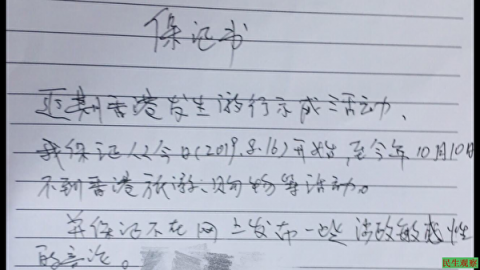 保证书
近期香港发生游行示威活动,
我保证从今日(2019.8.16)开始,至今年10月10日
不到香港旅游、购物等活动。
并保证不在网上发布一些涉政敏感性
的言论。
民生观察